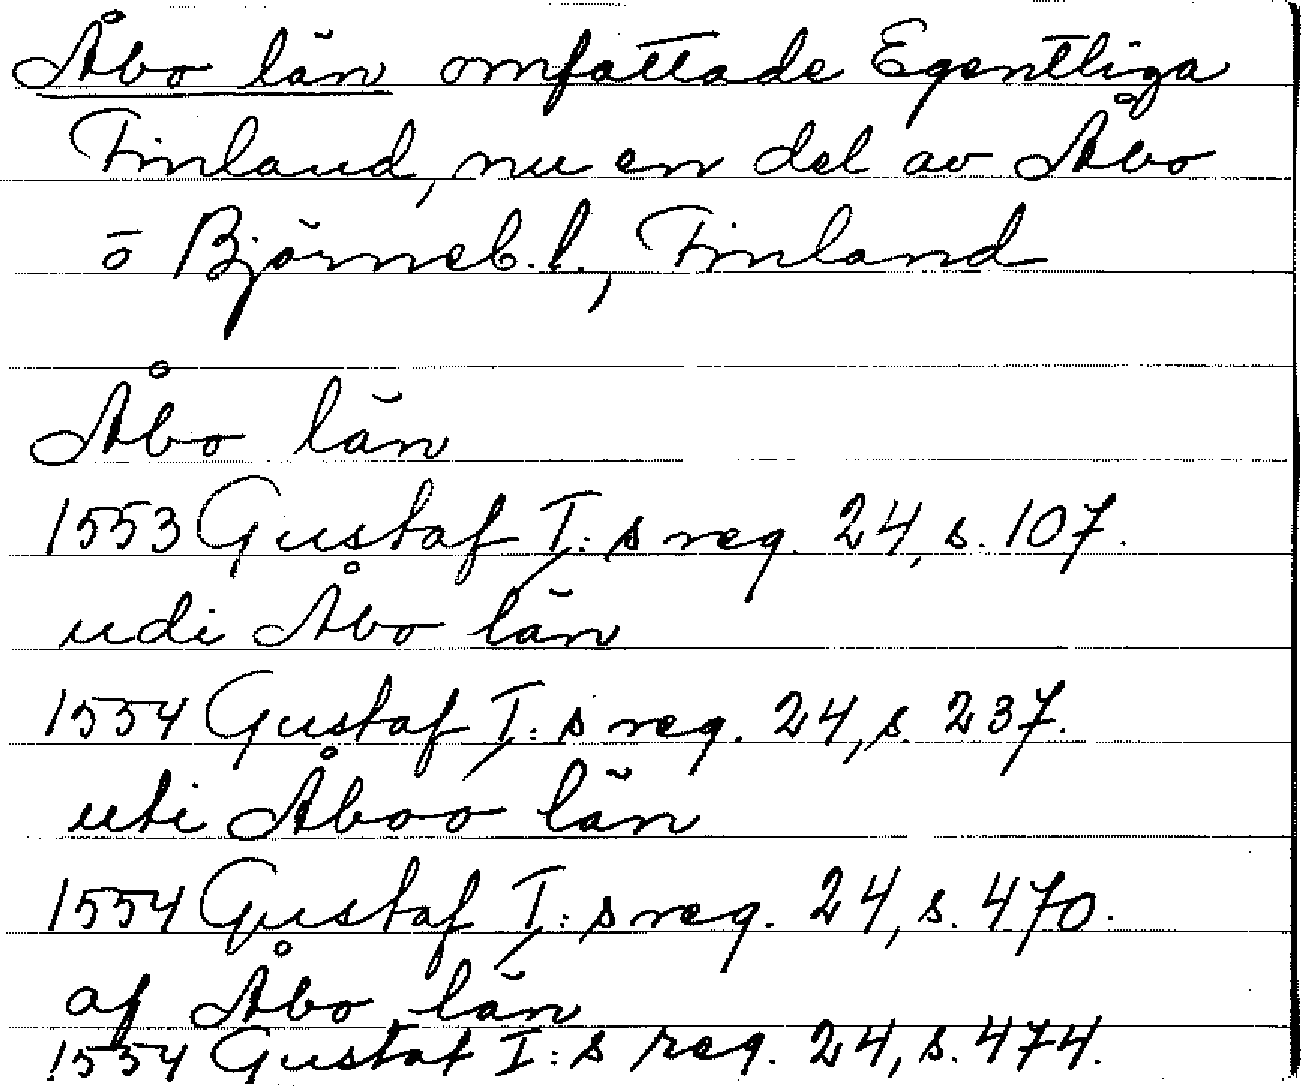 Åbo län omfattade Egentliga
Finland, nu en del av Åbo
o Björneb. l., Finland
Åbo län
1553 Gustaf I:s reg. 24, s. 107.
udi Åbo län
1554 Gustaf I:s reg. 24, s. 237.
uti Åboo län
1554 Gustaf I:s reg. 24, s. 470.
af Åbo län
1554 Gustaf I:s reg. 24, s. 474.